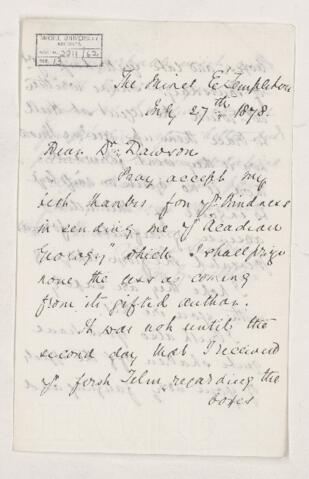 McGILL UNIVERSITY
ARCHIVES
ACC. NO. 2211/62
REF. 13
The Mines E. Templeton
July 27th 1878.
Dear Dr. Dawson
Pray accept my
best thanks for yr Kindness
in sending me yr "Acadian
Geology" which I shall prize
none the less as coming
from its gifted author.
It was not until the
second day that I received
yr first Telm. regarding the
boxes